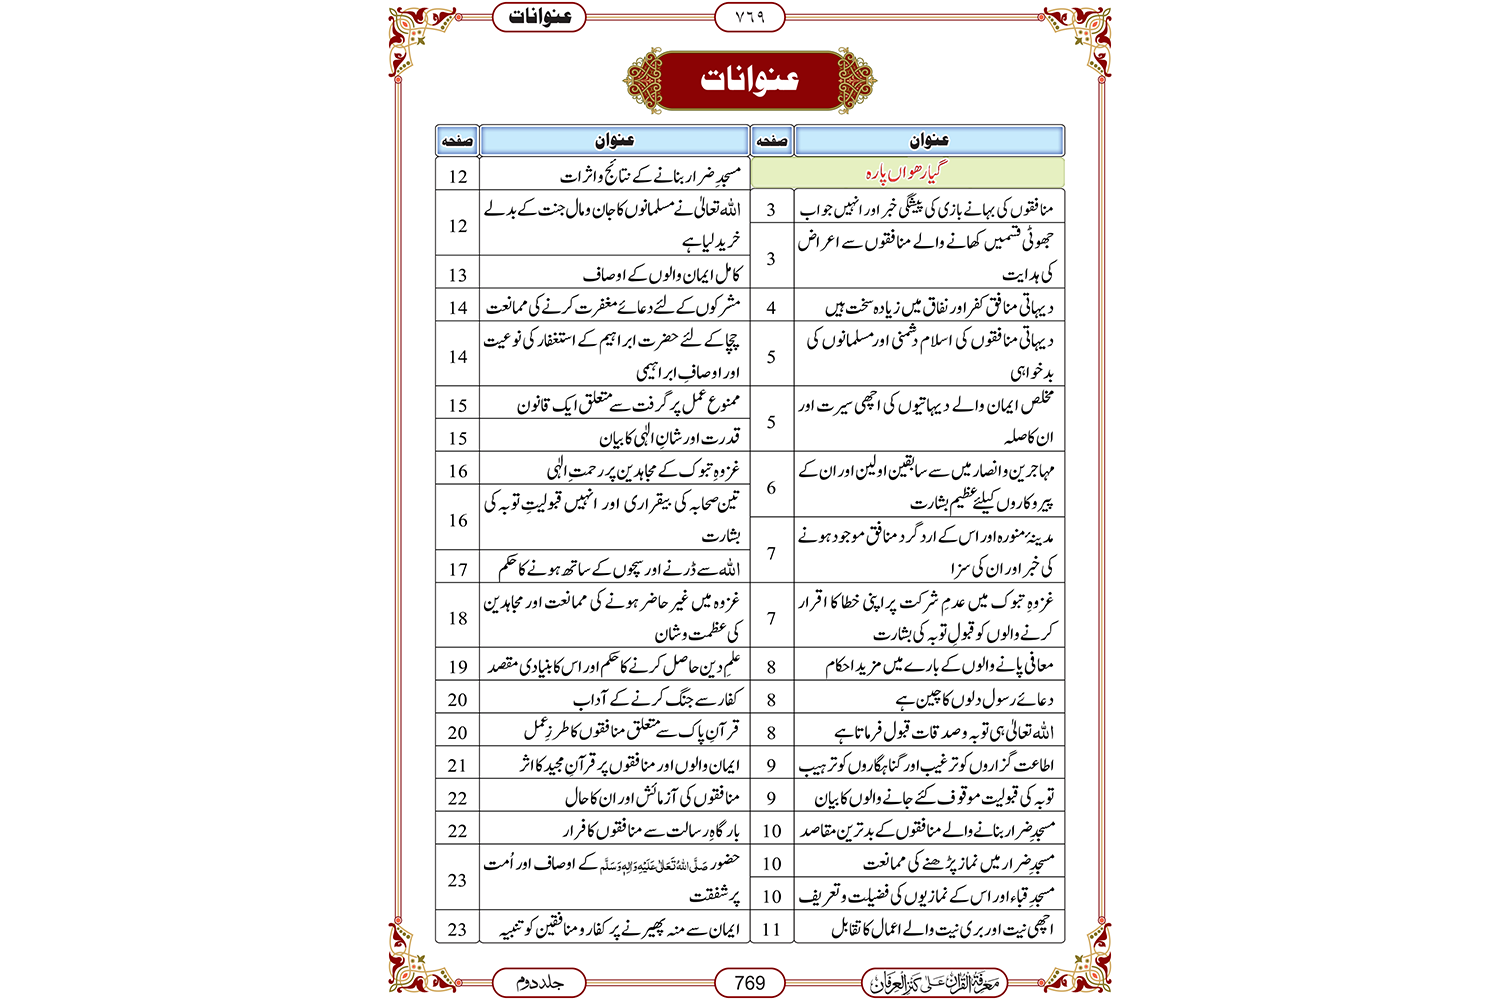 عنوانات
۷٦۹
عنوانات
عنوان صفحہ
گیارھواں پارہ
منافقوں کی بہانے بازی کی پیشگی خبر اور انہیں جواب 3
جھوٹی قسمیں کھانے والے منافقوں سے اعراض
کی ہدایت 3
دیہاتی منافق کفر اور نفاق میں زیادہ سخت ہیں 4
دیہاتی منافقوں کی اسلام دشمنی اور مسلمانوں کی
بدخواہی 5
مخلص ایمان والے دیہاتیوں کی اچھی سیرت اور
ان کا صلہ 5
مہاجرین و انصار میں سے سابقین اولین اور ان کے
پیروکاروں کیلئے عظیم بشارت 6
مدینۂ منورہ اور اس کے ارد گرد منافق موجود ہونے
کی خبر اور ان کی سزا 7
غزوہِ تبوک میں عدمِ شرکت پر اپنی خطا کا اقرار
کرنے والوں کو قبولِ توبہ کی بشارت 7
معافی پانے والوں کے بارے میں مزید احکام 8
دعائے رسول دلوں کا چین ہے 8
اللہ تعالیٰ ہی توبہ و صدقات قبول فرماتا ہے 8
اطاعت گزاروں کو ترغیب اور گناہگاروں کو ترہیب 9
توبہ کی قبولیت موقوف کئے جانے والوں کا بیان 9
مسجدِ ضرار بنانے والے منافقوں کے بدترین مقاصد 10
مسجدِ ضرار میں نماز پڑھنے کی ممانعت 10
مسجدِ قباء اور اس کے نمازیوں کی فضیلت و تعریف 10
اچھی نیت اور بری نیت والے اعمال کا تقابل 11
عنوان صفحہ
مسجدِ ضرار بنانے کے نتائج و اثرات 12
اللہ تعالیٰ نے مسلمانوں کا جان و مال جنت کے بدلے
خرید لیا ہے 12
کامل ایمان والوں کے اوصاف 13
مشرکوں کے لئے دعائے مغفرت کرنے کی ممانعت 14
چچا کے لئے حضرت ابراہیم کے استغفار کی نوعیت
اور اوصافِ ابراہیمی 14
ممنوع عمل پر گرفت سے متعلق ایک قانون 15
قدرت اور شانِ الٰہی کا بیان 15
غزوہِ تبوک کے مجاہدین پر رحمتِ الٰہی 16
تین صحابہ کی بیقراری اور انہیں قبولیتِ توبہ کی
بشارت 16
اللہ سے ڈرنے اور سچوں کے ساتھ ہونے کا حکم 17
غزوہ میں غیر حاضر ہونے کی ممانعت اور مجاہدین
کی عظمت و شان 18
علمِ دین حاصل کرنے کا حکم اور اس کا بنیادی مقصد 19
کفار سے جنگ کرنے کے آداب 20
قرآنِ پاک سے متعلق منافقوں کا طرزِ عمل 20
ایمان والوں اور منافقوں پر قرآنِ مجید کا اثر 21
منافقوں کی آزمائش اور ان کا حال 22
بارگاہِ رسالت سے منافقوں کا فرار 22
حضور صَلَّی اللہُ تَعَالٰی عَلَیْہِ وَاٰلِہٖ وَسَلَّم کے اوصاف اور اُمت
پر شفقت 23
ایمان سے منہ پھیرنے پر کفار و منافقین کو تنبیہ 23
معرفۃ القرآن علی کنز العرفان
769
جلد دوم